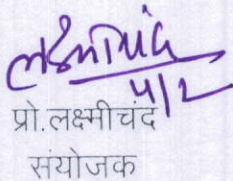 लक्ष्मीचंद
4/2
प्रो.लक्ष्मीचंद
संयोजक